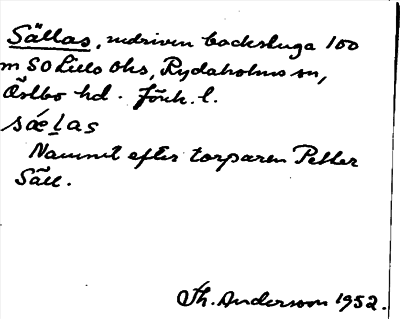 Sällas, nedriven backstuga 100
m SO Lilla Ohs, Rydaholms sn,
Östbo hd. Jönk. l.
sǽlas
Namnet efter torparen Petter
Säll.
Th. Andersson 1952.